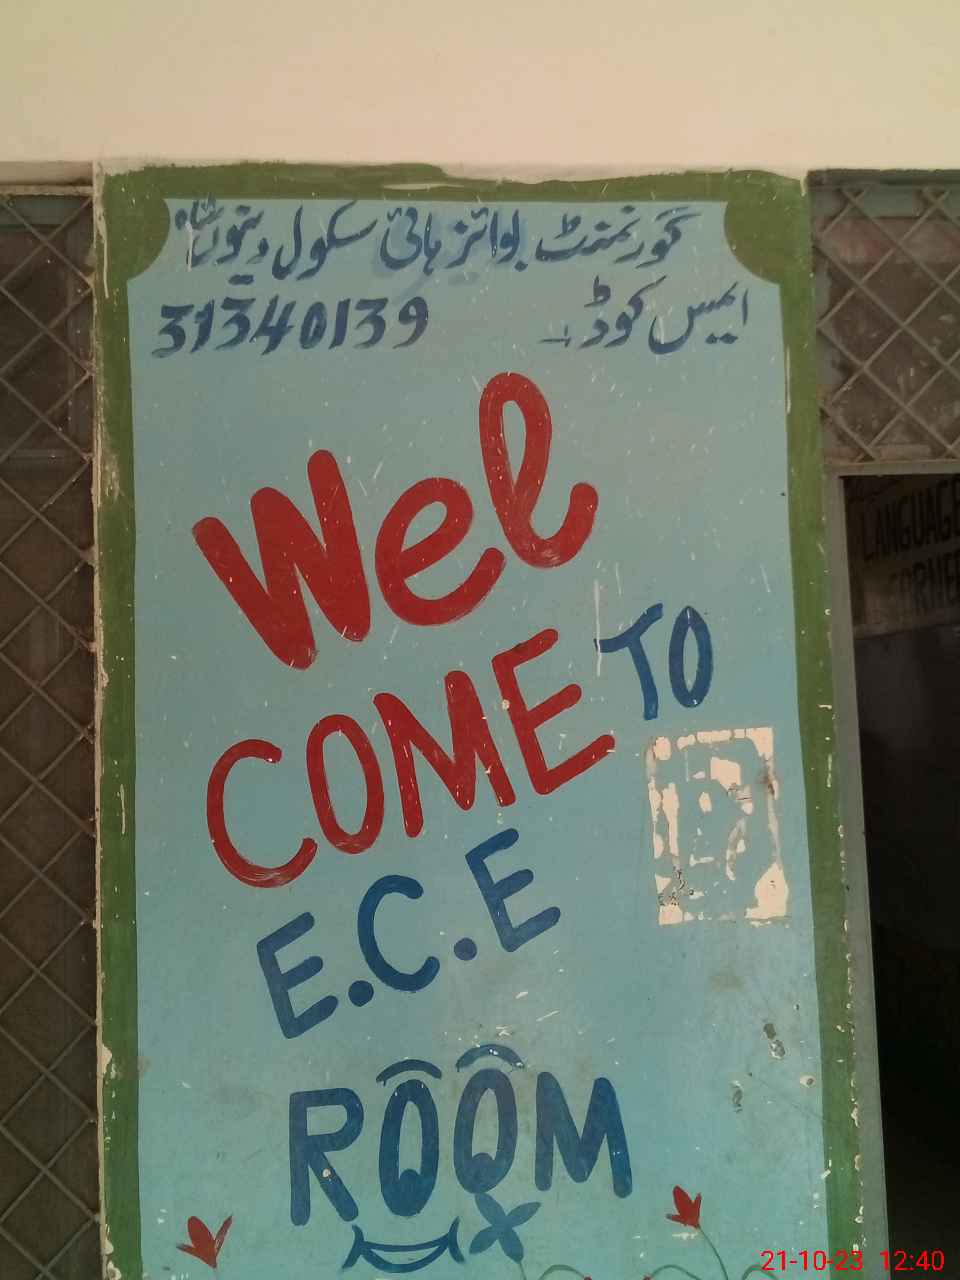 گورنمنٹ بوائز ہائی سکول وینوں شاہ
ایمس کوڈ۔
31340139
Wel
COME TO
E.C.E
ROOM
LANGUAGE
CORNER
21-10-23 12:40